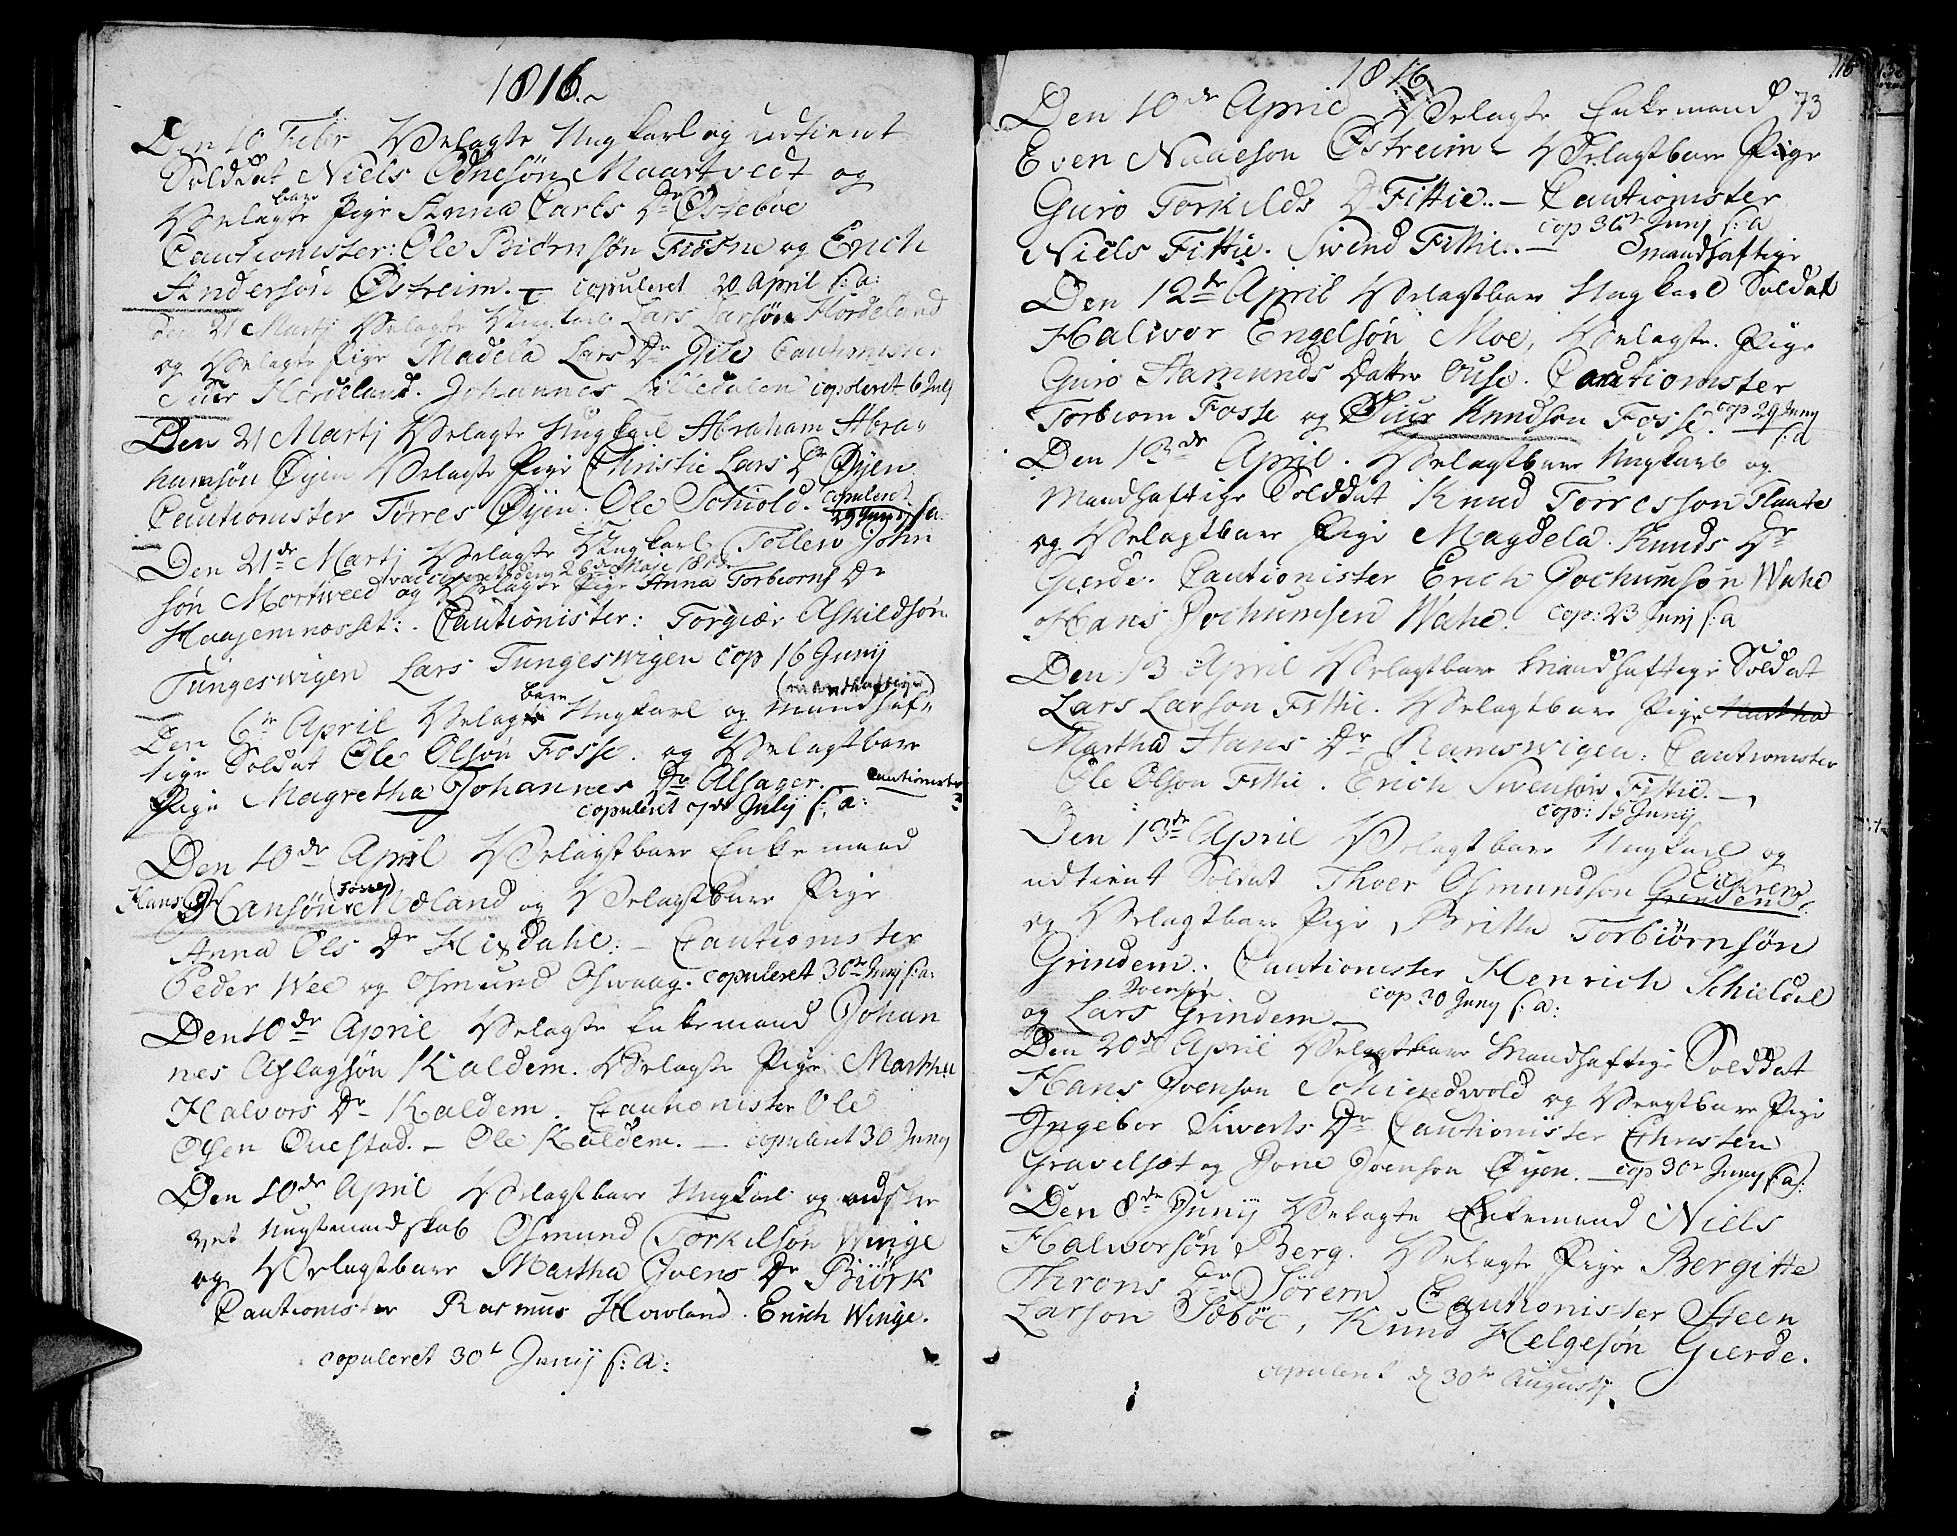 1816.~
Den 10 Febr Velagte Ungkarl og udtient
Soldat Niels Odnesøn Maartvedt og
Velagtbare Pige Anna Carls Dr Østebøe
Cautionister: Ole Biørnsøn Frøsne og Erich
Andersøn Østreim. - copuleret 20 April s: a:
den 21 Martj Velagte Ungkarl Lars Larsøn Hordeland
og Velagte Pige Madela Lars Dr Qile Cautionister
Siur Hordeland. Johannes Lilledalen copuleret 6 Julj
Den 21 Martj Velagte Ungkarl Abraham Abra„
hamsøn Øyen Velagte Pige Christie Lars Dr Øyen
Cautionister Tørres Øyen. Ole Schiold. copuleret
29 Junj s: a:
Den 21de Martj Velagte Ungkarl Tollew John
vaccineret den 26de Maji
søn Mortweed og Velagte Pige Anna Torbiorns Dr
Haajemnæsset: Cautionister: Torgiær Askildsøn
Tungeswigen Lars Tungeswigen cop 16 Junij
bare (mandhaftige)
Den 6te April Velagte Ungkarl og Mandhaf„
tige Soldat Ole Olsøn Fosse. og Velagtbare
Pige Magretha Johannes Dr Alsager. - Cautionister
?
copuleret 7de Julij s: a:
Den 10de April Velagtbare Enkemand
Hans Hansøn Mæland og Velagtbare Pige
Anna Ols Dr Hixdahl: - Cautionister
Peder Wee og Osmund Oswaag. copuleret 30te Junj s: a:
Den 10de April Velagte Enkemand Johan
nes Aslagsøn Kaldem. Velagte Pige Martha
Halvors Dr Kaldem. Cautionister Ole
Olsen Ønestad. - Ole Kaldem. - copuleret 30 Junij
Den 10de April Velagtbare Ungkarl og udskre
vet Ungtmandskab Osmund Torkilsøn Winge
og Velagtbare Martha Ivens Dr Biørk
Cautionister Rasmus Howland. Erich Winge.
copuleret 30t Junij s: a:
1816
116
73
Den 10de April Velagte Enkemand
Even Naaeson Østreim - Velagtbare Pige
Guro Torkilds D Fittie.. - Cautionister
cop 30te Junij s: a
Niels Fittie. Swend Fittie.. -
Mandhaftige
Den 12te April Velagtbare Ungkarl Soldat
Halwor Engelsøn Moe, Velagte. Pige
Guro Aamunds Datter Ouse. Cautionister
Torbiorn Fosse og Siur Knudson Fosse. cop 29 Junij
s: a
Den 13de April. Velagtbare Ungkarl og
Mandhaftige Solddat Knud Torresson Flaate
og Velagtbare Pige Magdela Knuds Dr
Gierde. Cautionister Erich Jochumsøn Wahe
Hans Jochumsen Wahe. cop: 23 Junij s: a
Den 13 April Velagtbare Mandhaftige Soldat
Lars Larson Fittie. Velagtbare Pige Martha
Martha Hans Dr Ramswigen: Cautionister
Ole Olson Fittie. Erich Swensøn Fittie. -
cop: 15 Junij
Den 13de April Velagtbare Ungkarl og
udtient Soldat Thoer Osmundson Grindem
og Velagtbare Pige Britta Torbiørnsøn
Grindem.. Cautionister Henrich Schieldal
Ivensøn cop 30 Junij s: a:
og Lars Grindem -
Den 20de April Velagtbare Mandhaftige Solddat
Hans Ivenson Schiendwold og Velagtbare Pige
Ingebor Siwerts Dr Cautionister Christen
Gravelsæt og Jone Ivenson Øyen. - cop 30te Junij s: a:
Den 8de Junij Velagte Enkemand Niels
Halworsøn Berg. Velagte Pige Bergitte
Throns Dr Sørem Cautionister Steen
Larson Sæbøe, Knud Helgesøn Gierde.
copuleret d 30te Augustj